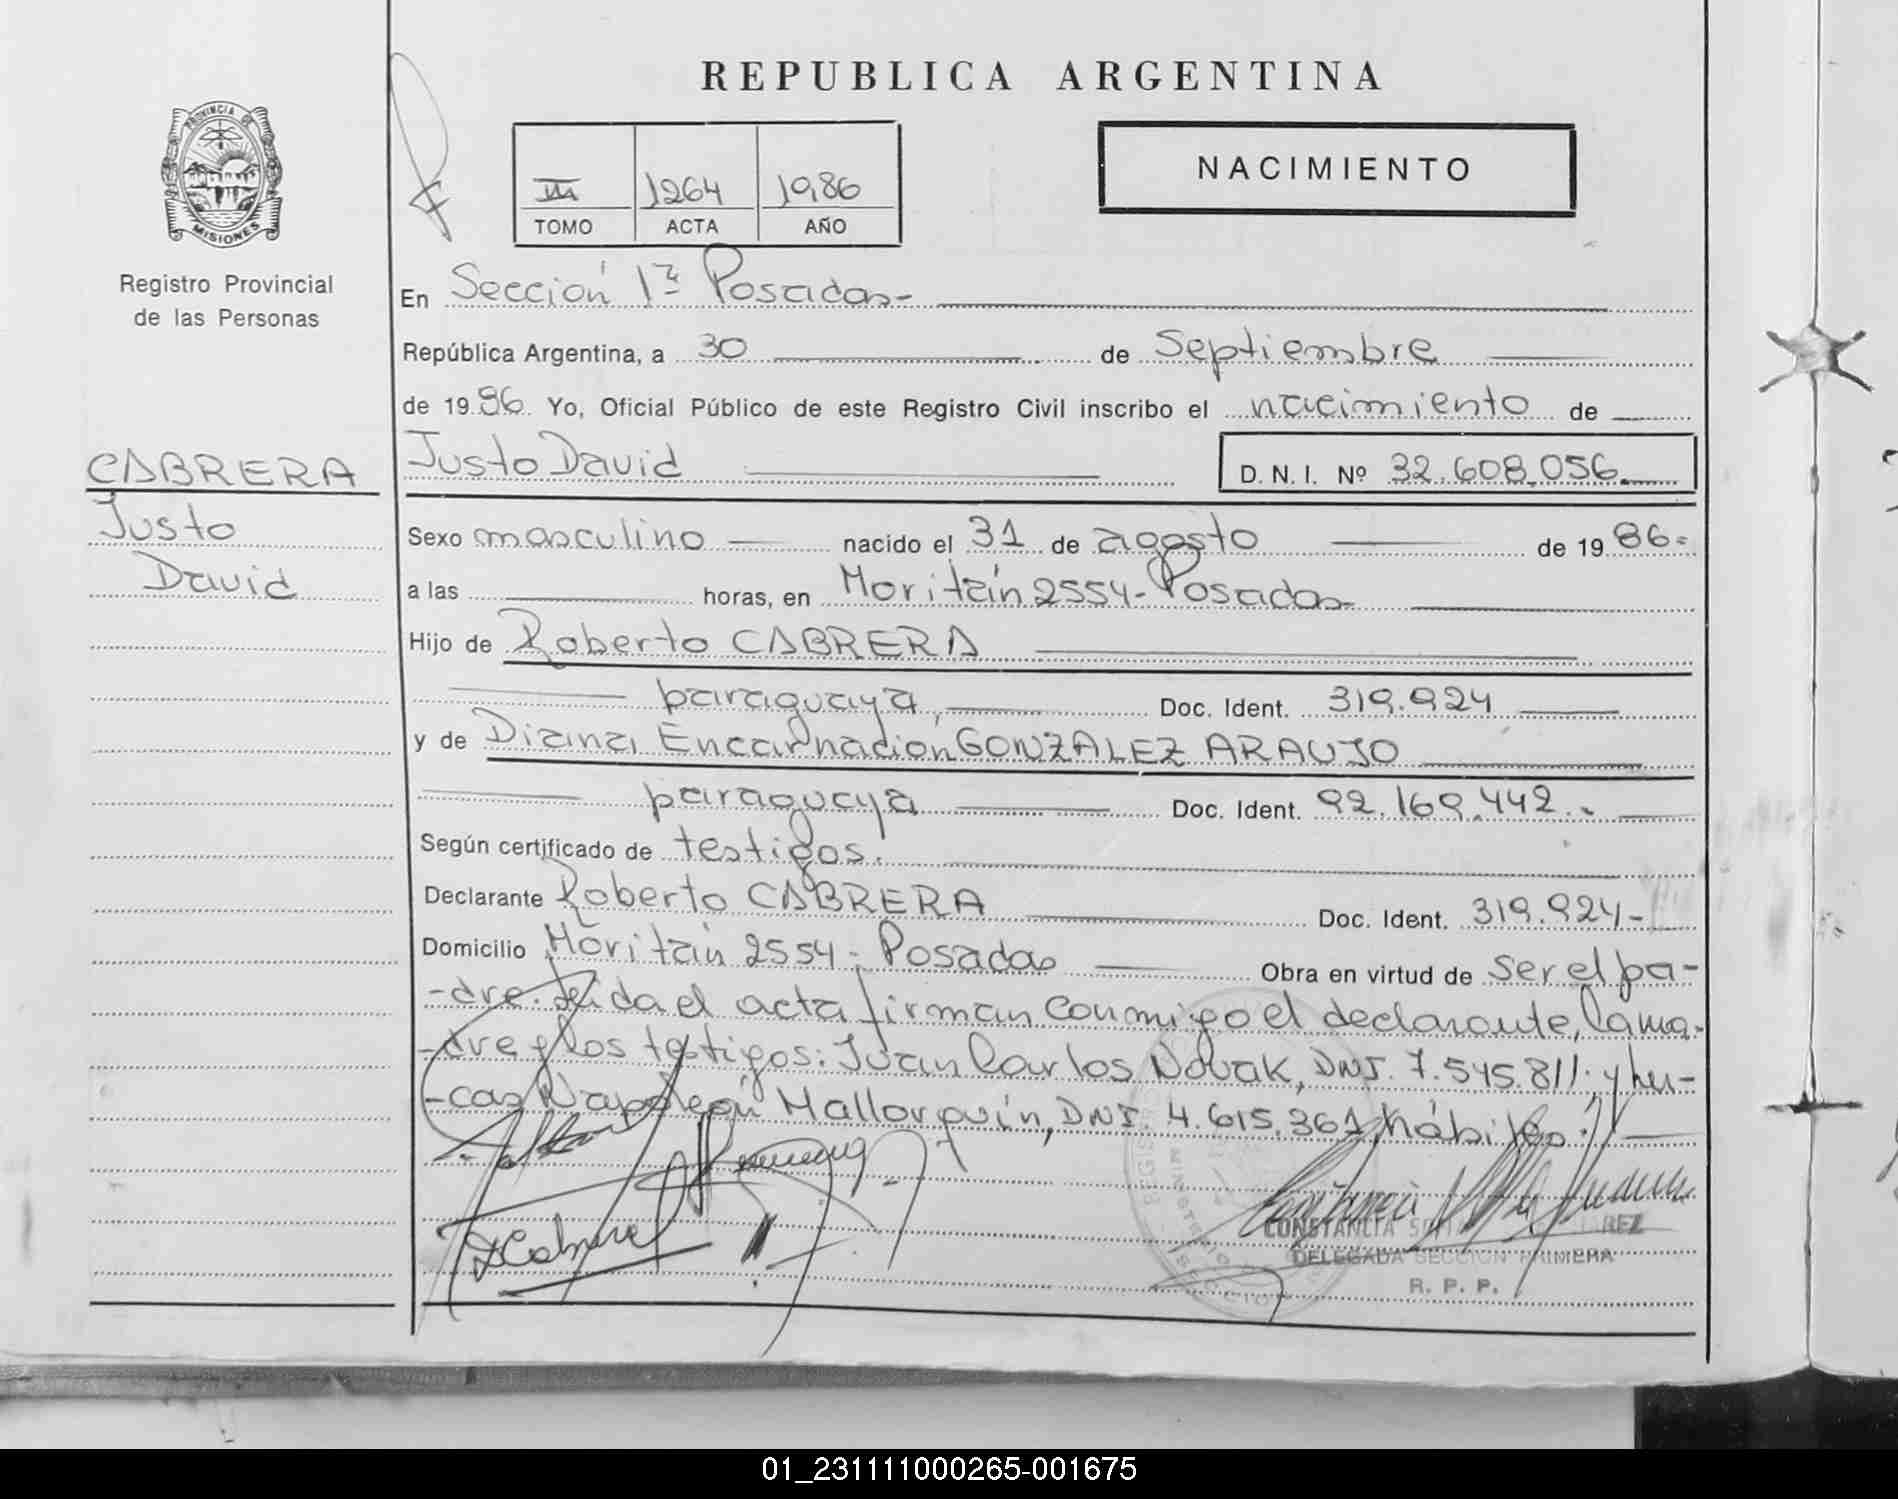 REPUBLICA ARGENTINA
PROVINCIA DE
MISIONES
Registro Provincial
de las Personas
III 1264 1986
TOMO ACTA AÑO
NACIMIENTO
En Sección 1ª Posadas-
República Argentina, a 30 de Septiembre
de 1986 Yo, Oficial Público de este Registro Civil inscribo el nacimiento de
CABRERA
Justo
David
Justo David
D. N. I. Nº 32.608.056
Sexo masculino nacido el 31 de agosto de 19 86-
a las horas, en Moritán 2554-Posadas
Hijo de Roberto CABRERA
paraguaya, Doc. Ident. 319.924
y de Diana Encarnación GONZALEZ ARAUJO
paraguaya Doc. Ident. 92.169.442.-
Según certificado de testigos.
Declarante Roberto CABRERA Doc. Ident. 319.924-
Domicilio Moritán 2554- Posadas Obra en virtud de ser el pa-
-dre. Leida el acta firman conmigo el declarante, la ma-
-dre y los testigos: Juan Carlos Novak, DNI. 7.545.811. y Lu-
-cas Napoleón Mallorquín, DNI. 4.615.361, hábiles.
CONSTANCIA
DELEGADA SECCION PRIMERA
R. P. P.
01_231111000265-001675